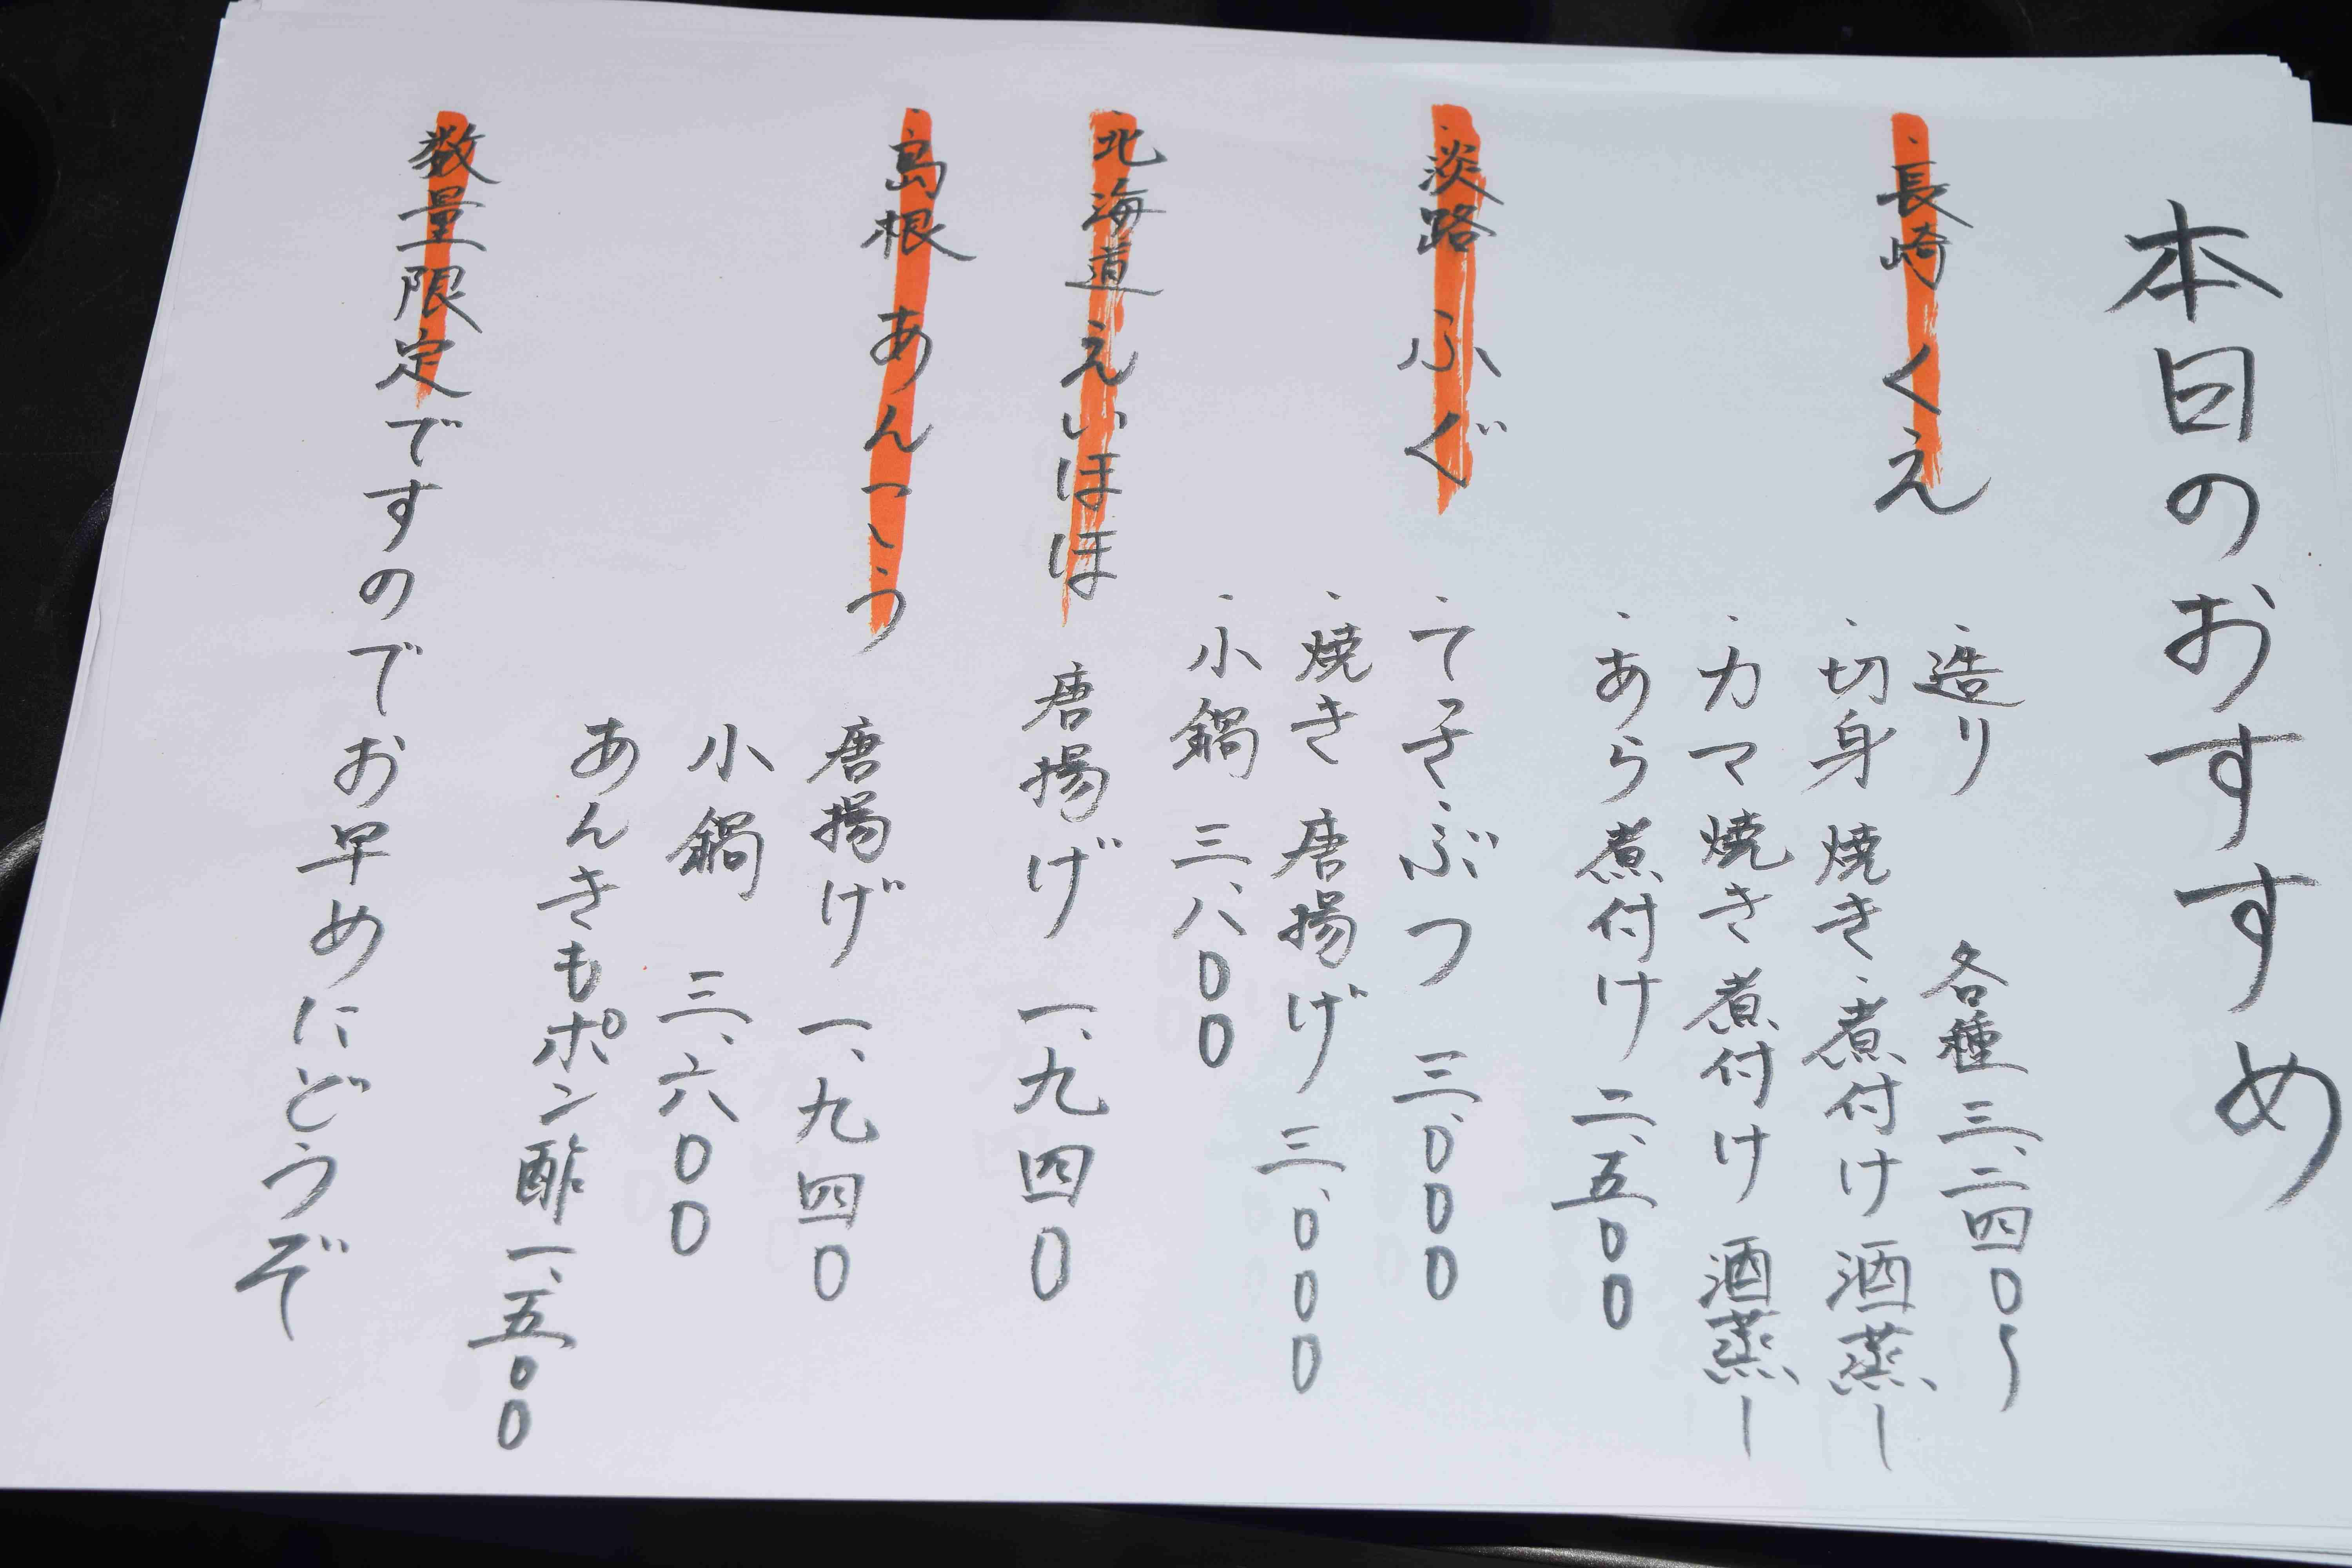 本日のおすすめ
・長崎 くえ
・造り 各種 三、二四〇〜
・切身 焼き・煮付け 酒蒸し
・カマ 焼き 煮付け 酒蒸し
・あら煮付け 二、五〇〇
・淡路 ふぐ
・てっさ・ぶつ 三、〇〇〇
・焼き 唐揚げ 三、〇〇〇
・小鍋 三、八〇〇
・北海道 えいほほ 唐揚げ 一、九四〇
・島根 あんこう 唐揚げ 一、九四〇
小鍋 三、六〇〇
あんきもポン酢 一、五〇〇
数量限定ですのでお早めにどうぞ